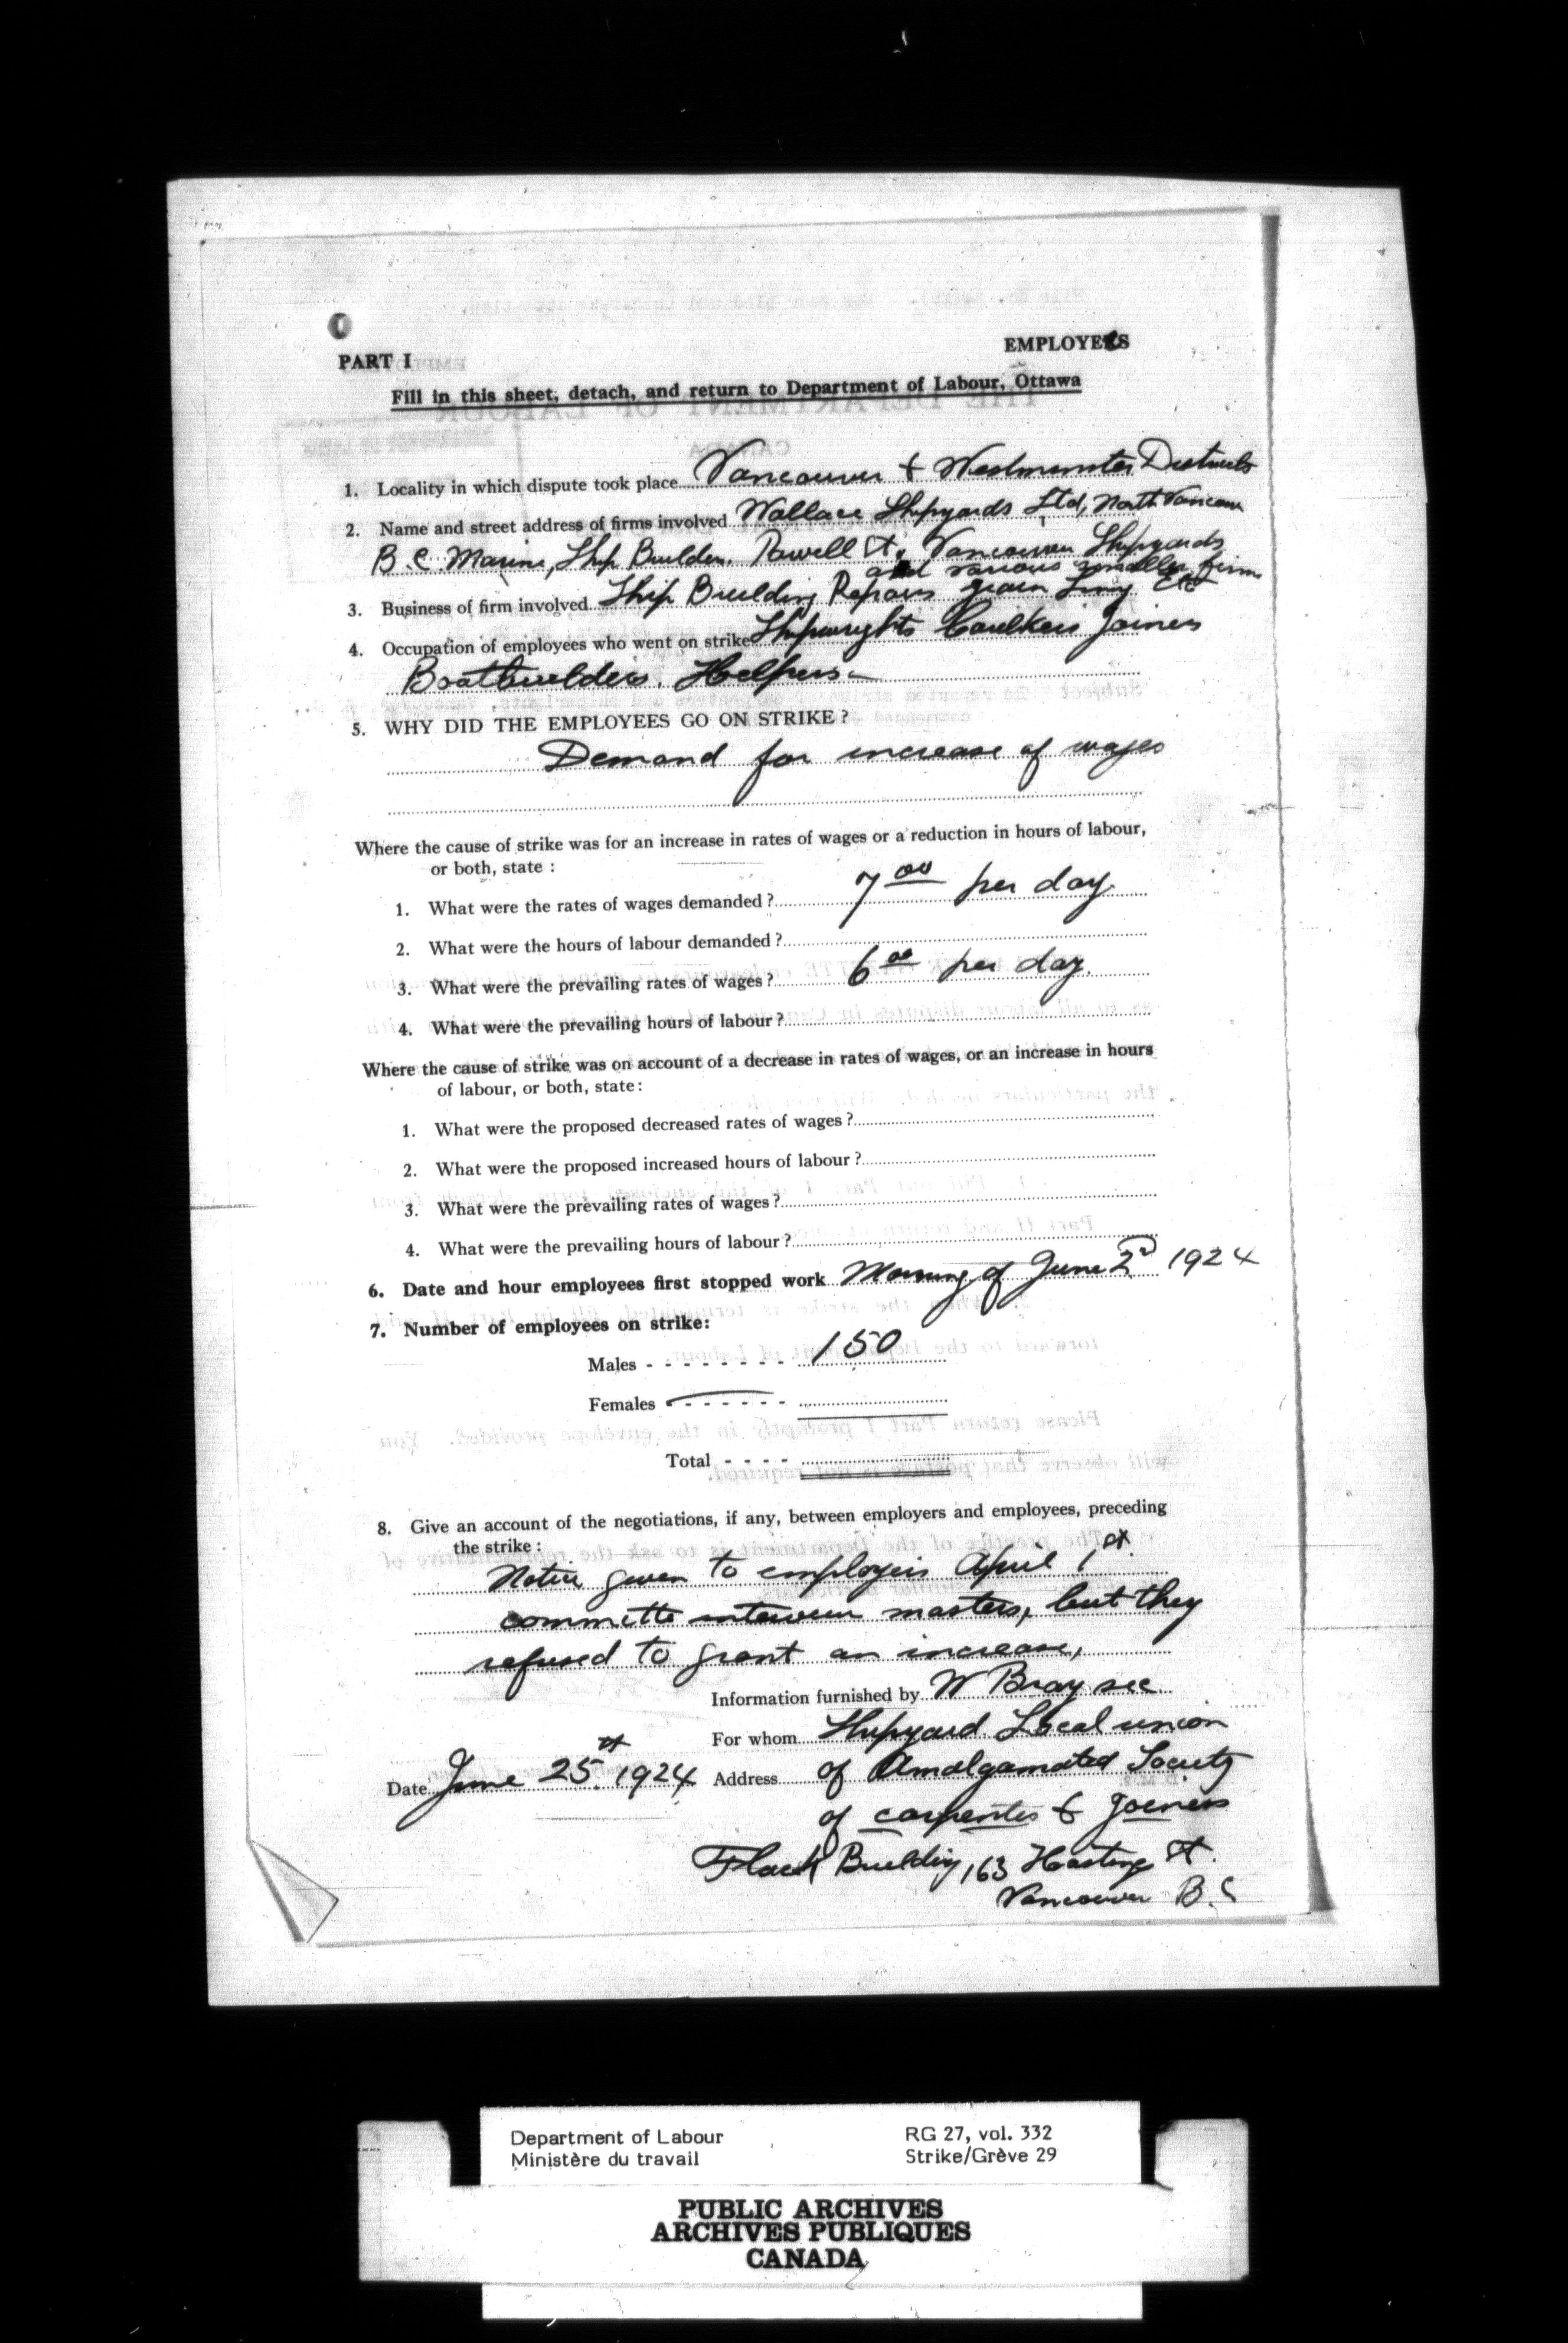 PART I
EMPLOYEES
Fill in this sheet, detach, and return to Department of Labour, Ottawa
1. Locality in which dispute took place Vancouver & Westminster Districts
2. Name and street address of firms involved Wallace Shipyards Ltd, North Vancouver
B.C. Marine, Ship Builders, Powell St, Vancouver Shipyards
and various smaller firms
3. Business of firm involved Ship Building Repairs grain Etc
4. Occupation of employees who went on strike Shipwrights Caulkers Joiners
Boatbuilders. Helpers
5. WHY DID THE EMPLOYEES GO ON STRIKE?
Demand for increase of wages
Where the cause of strike was for an increase in rates of wages or a reduction in hours of labour,
or both, state:
1. What were the rates of wages demanded? 7 00 per day
2. What were the hours of labour demanded?
3. What were the prevailing rates of wages? 6 00 per day.
4. What were the prevailing hours of labour?
Where the cause of strike was on account of a decrease in rates of wages, or an increase in hours
of labour, or both, state:
1. What were the proposed decreased rates of wages?
2. What were the proposed increased hours of labour?
3. What were the prevailing rates of wages?
4. What were the prevailing hours of labour?
6. Date and hour employees first stopped work Morning of June 2nd 1924
7. Number of employees on strike:
Males - - - - - - - - 150
Females - - - - - - -
Total - - - -
8. Give an account of the negotiations, if any, between employers and employees, preceding
the strike:
Notice given to employers April 1st
committe interview masters, but they
refused to grant an increase,
Information furnished by W Bray sec
For whom Shipyard Local union
Date June 25th 1924 Address of Amalgamated Society
of carpenters & Joiners
Flack Building, 163 Hastings St.
Vancouver B.C
Department of Labour
Ministère du travail
RG 27, vol. 332
Strike/Grève 29
PUBLIC ARCHIVES
ARCHIVES PUBLIQUES
CANADA